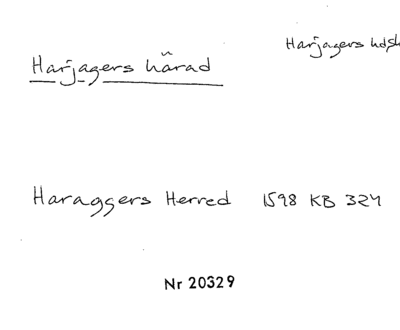 Harjagers hdsk
Harjagers härad
Haraggers Herred 1598 KB 324
Nr 20329